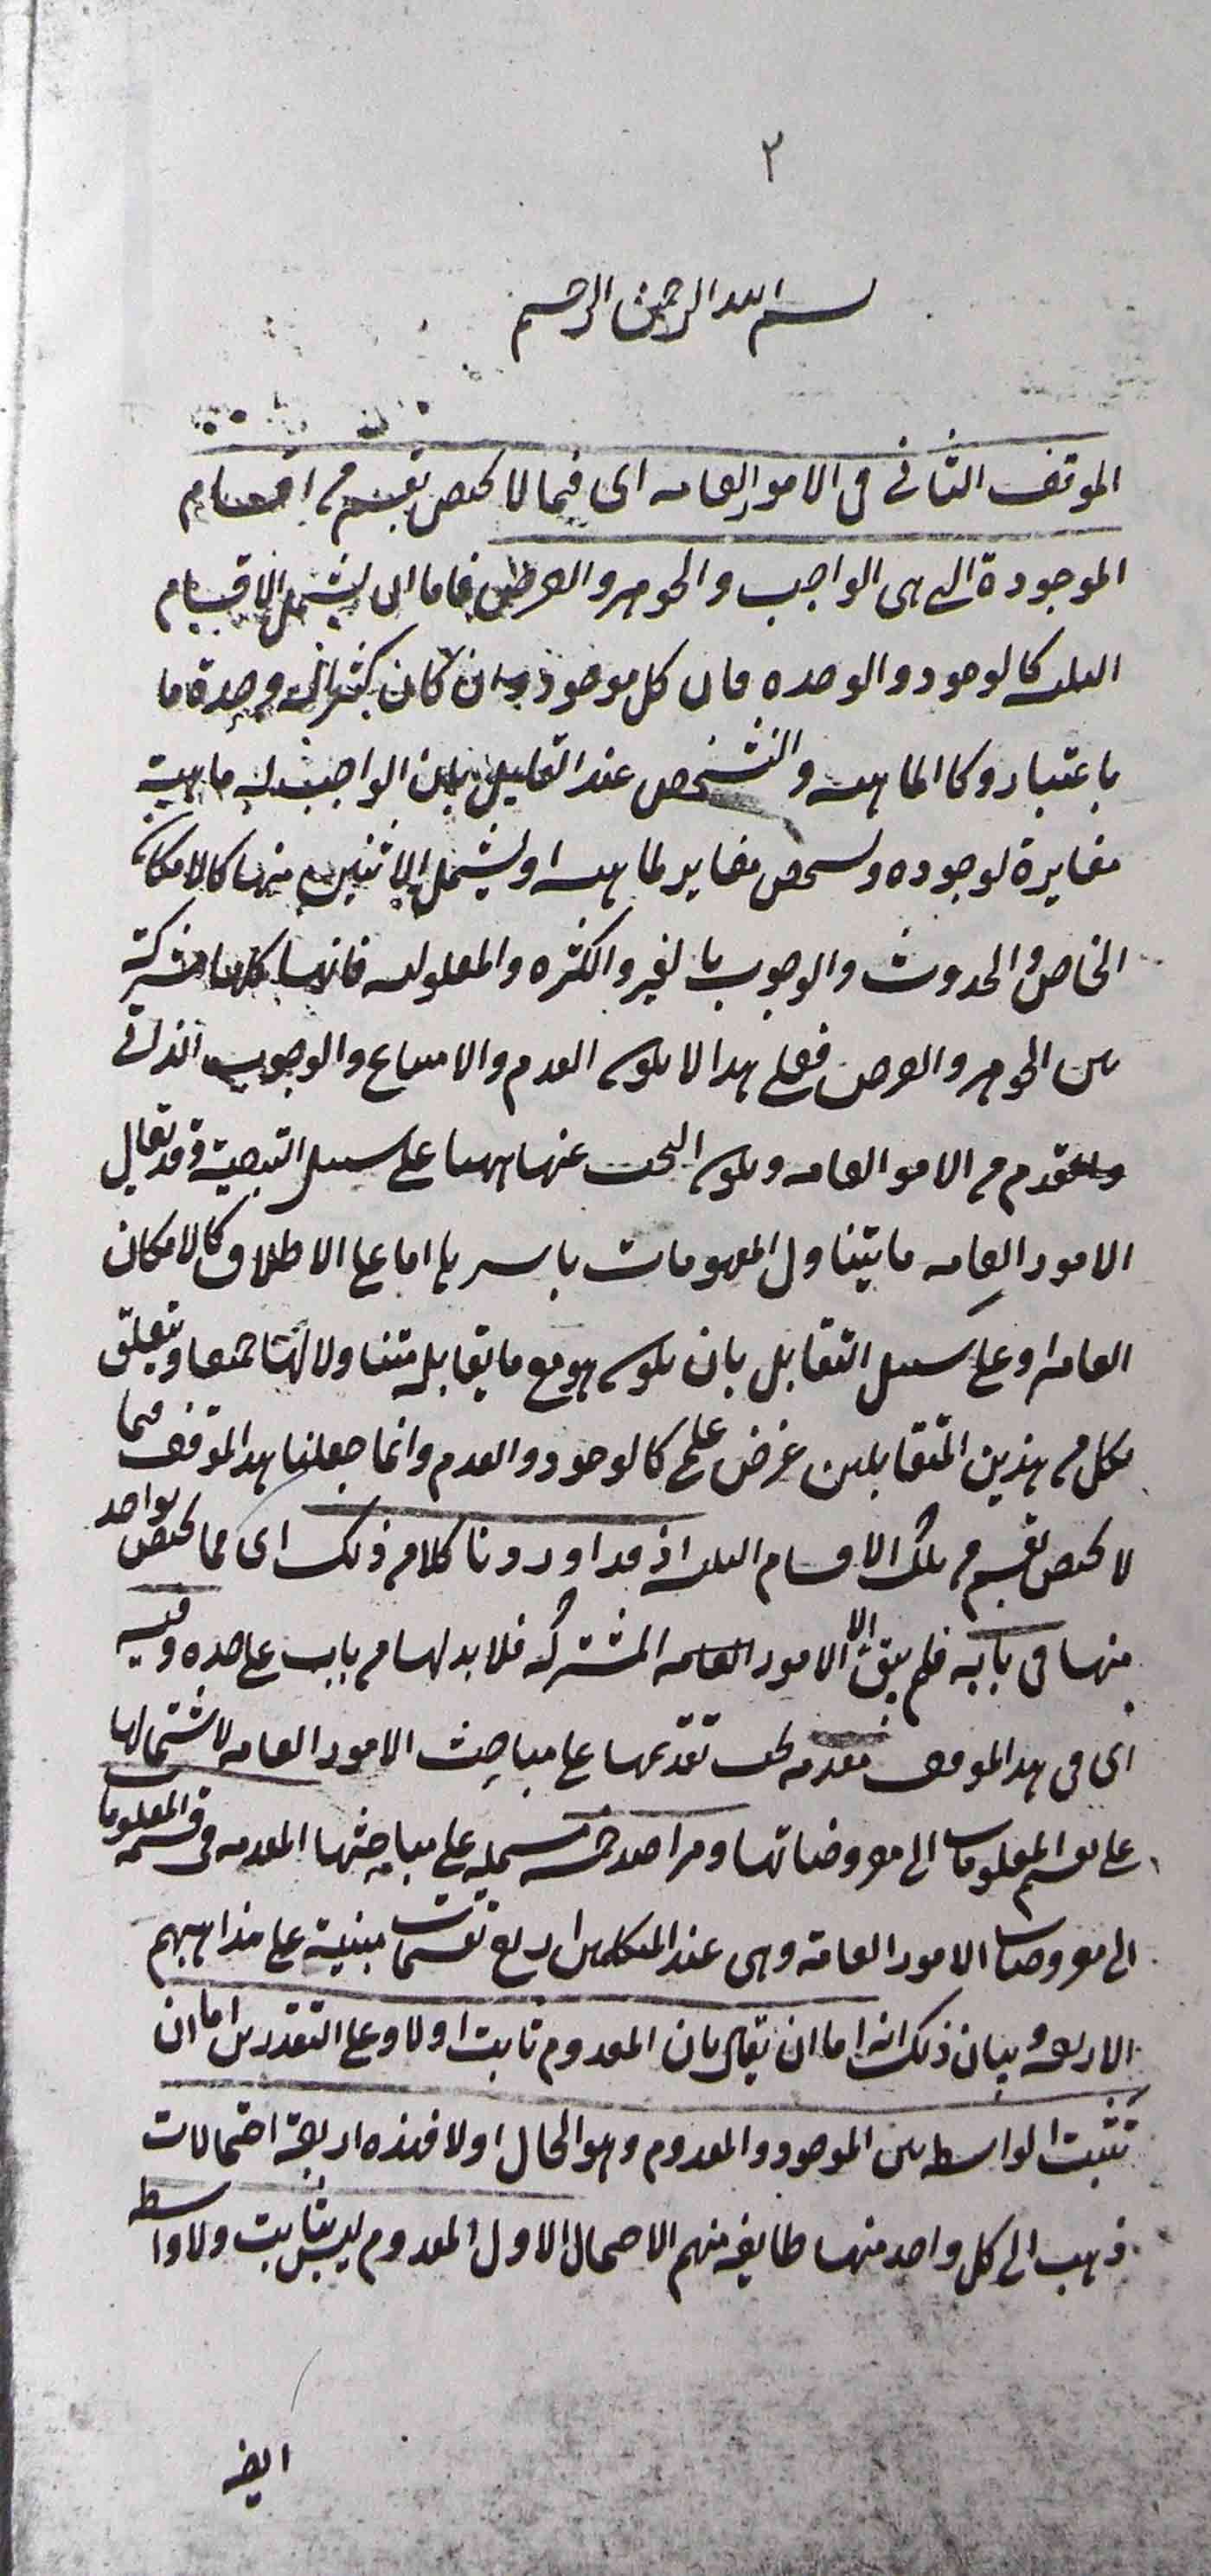 ٢
بسم الله الرحمن الرحيم
الموقف الثاني في الامور العامه اى فيما لا يختص بقسم من اقسام
الموجودة التي هي الواجب والجوهر والعرض فاما ان يشمل الاقسام
الثلثه كالوجود والوحده فان كل موجود وان كان كثيرا له وحدة ما
باعتبار وكالماهيه والتشخص عند القايل بان الواجب له ماهية
مغايرة لوجوده وتشخص مغاير لماهيته او يشمل الاثنين منها كالامكان
الخاص والحدوث والوجوب بالغير والكثره والمعلوليه فانها كلها مشتركة
بين الجوهر والعرض فعلى هذا لا يكون العدم والامتناع والوجوب الذاتي
والقدم من الامور العامه ويكون البحث عنها ههنا على سبيل التبعية وقد يقال
الامور العامه ما يتناول المفهومات باسرها اما على الاطلاق كالامكان
العام او على سبيل التقابل بان يكون هو مع ما يقابله متناولا لها جميعا ويتعلق
بكل من هذين المتقابلين غرض علمي كالوجود والعدم وانما جعلنا هذا الموقف فيما
لا يختص بقسم من تلك الاقسام الثلثه اذ قد اوردنا كلا من ذلك اى مما يختص بواحد
منها في بابه فلم يبق الا الامور العامه المشتركه فلا بد لها من باب على حده وفيه
اى في هذا الموقف مقدمه يجب تقديمها على مباحث الامور العامه لاشتمالها
على تقسيم المعلومات الى معروضاتها ومراصد خمسه مشتمله على مباحثها المقدمه في قسمه المعلومات
الى معروضات الامور العامة وهي عند المتكلمين اربع تقسيمات مبنية على مذاهبهم
الاربعة وبيان ذلك انه اما ان يقال بان المعدوم ثابت او لا وعلى التقديرين اما ان
تثبت الواسطه بين الموجود والمعدوم وهو الحال او لا فهذه اربعة احتمالات
ذهب الى كل واحد منها طايفه منهم الاحتمال الاول المعدوم ليس بثابت ولا واسطه
ايضا